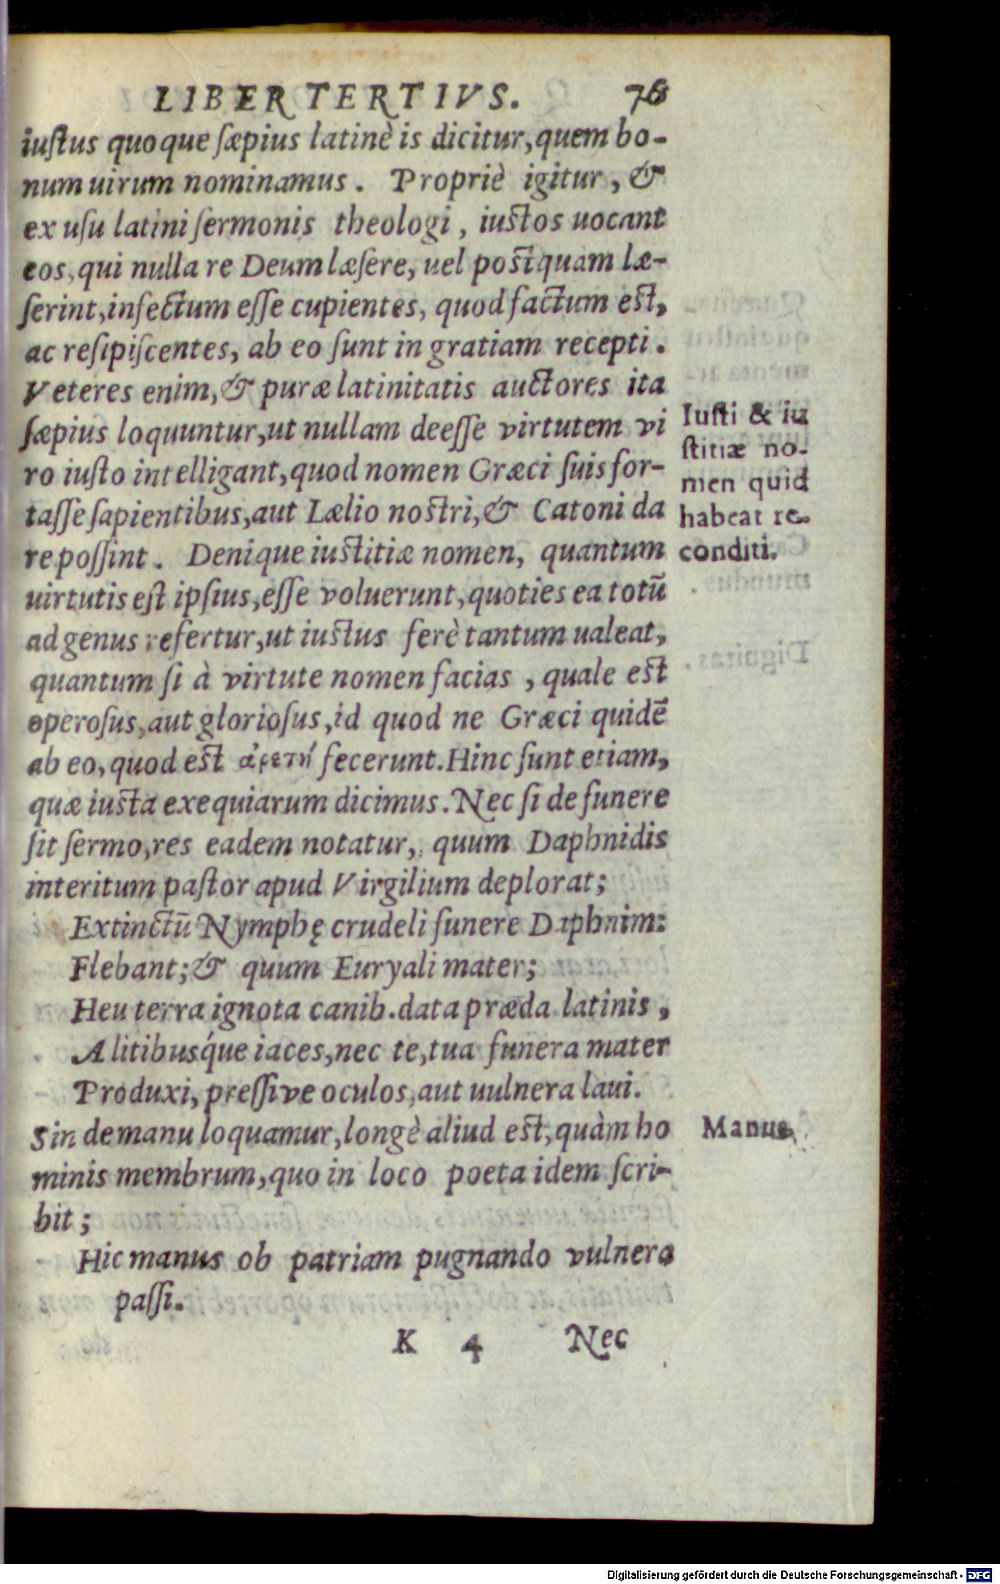 LIBER TERTIVS. 76
iustus quoque sæpius latinè is dicitur, quem bo-
num uirum nominamus. Propriè igitur, &
ex usu latini sermonis theologi, iustos uocant
eos, qui nulla re Deum læsere, uel postquam læ-
serint, infectum esse cupientes, quod factum est,
ac resipiscentes, ab eo sunt in gratiam recepti.
Veteres enim, & puræ latinitatis auctores ita
sæpius loquuntur, ut nullam deesse virtutem vi
ro iusto intelligant, quod nomen Græci suis for-
tasse sapientibus, aut Lælio nostri, & Catoni da
re possint. Denique iustitiæ nomen, quantum
uirtutis est ipsius, esse voluerunt, quoties ea totū
ad genus refertur, ut iustus ferè tantum ualeat,
quantum si à virtute nomen facias, quale est
operosus, aut gloriosus, id quod ne Græci quidē
ab eo, quod est ἀρετή fecerunt. Hinc sunt etiam,
quæ iusta exequiarum dicimus. Nec si de funere
sit sermo, res eadem notatur, quum Daphnidis
interitum pastor apud Virgilium deplorat;
Extinctū Nymphę crudeli funere Daphnim:
Flebant; & quum Euryali mater;
Heu terra ignota canib. data præda latinis,
Alitibusq́ue iaces, nec te, tua funera mater
Produxi, pressive oculos, aut uulnera laui.
Sin de manu loquamur, longè aliud est, quàm ho
minis membrum, quo in loco poeta idem scri-
bit;
Hic manus ob patriam pugnando vulnera
passi.
K 4 Nec
Iusti & iu
stitiæ no-
men quid
habeat re-
conditi.
Manus.
Digitalisierung gefördert durch die Deutsche Forschungsgemeinschaft - DFG